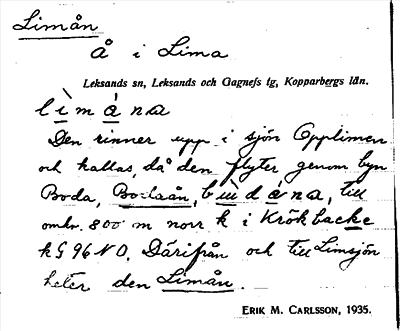 Limån
Å i Lima
Leksands sn, Leksands och Gagnefs tg, Kopparbergs län.
lìmána
Den rinner upp i sjön Opplimen
och kallas, då den flyter genom byn
Boda, Bodaån, bùdána, till
omkr. 800 m norr k i Krökbacke
k G 96 NO. Därifrån och till Limsjön
heter den Limån.
ERIK M. CARLSSON, 1935.